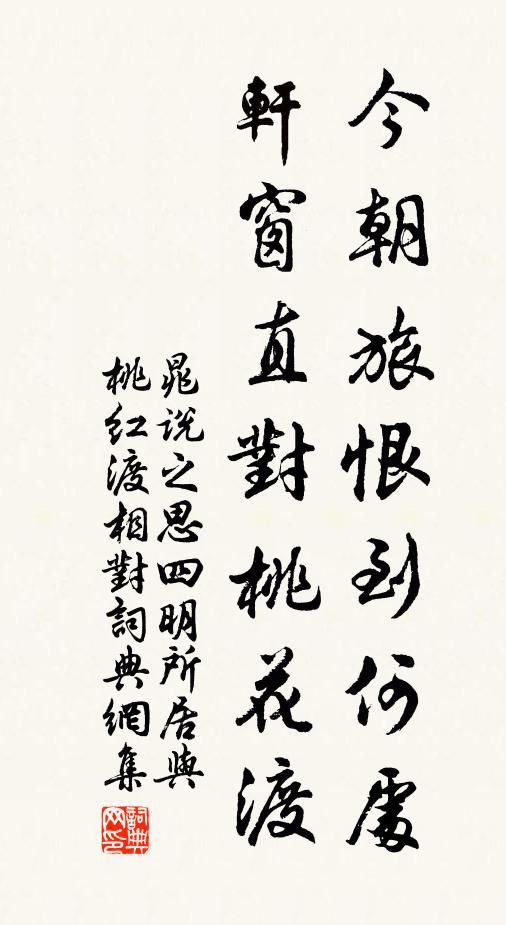 今朝旅恨到何處
軒窗直對桃花渡
晁説之思四明所居與
桃紅渡相對詞典網集
詞典
网印